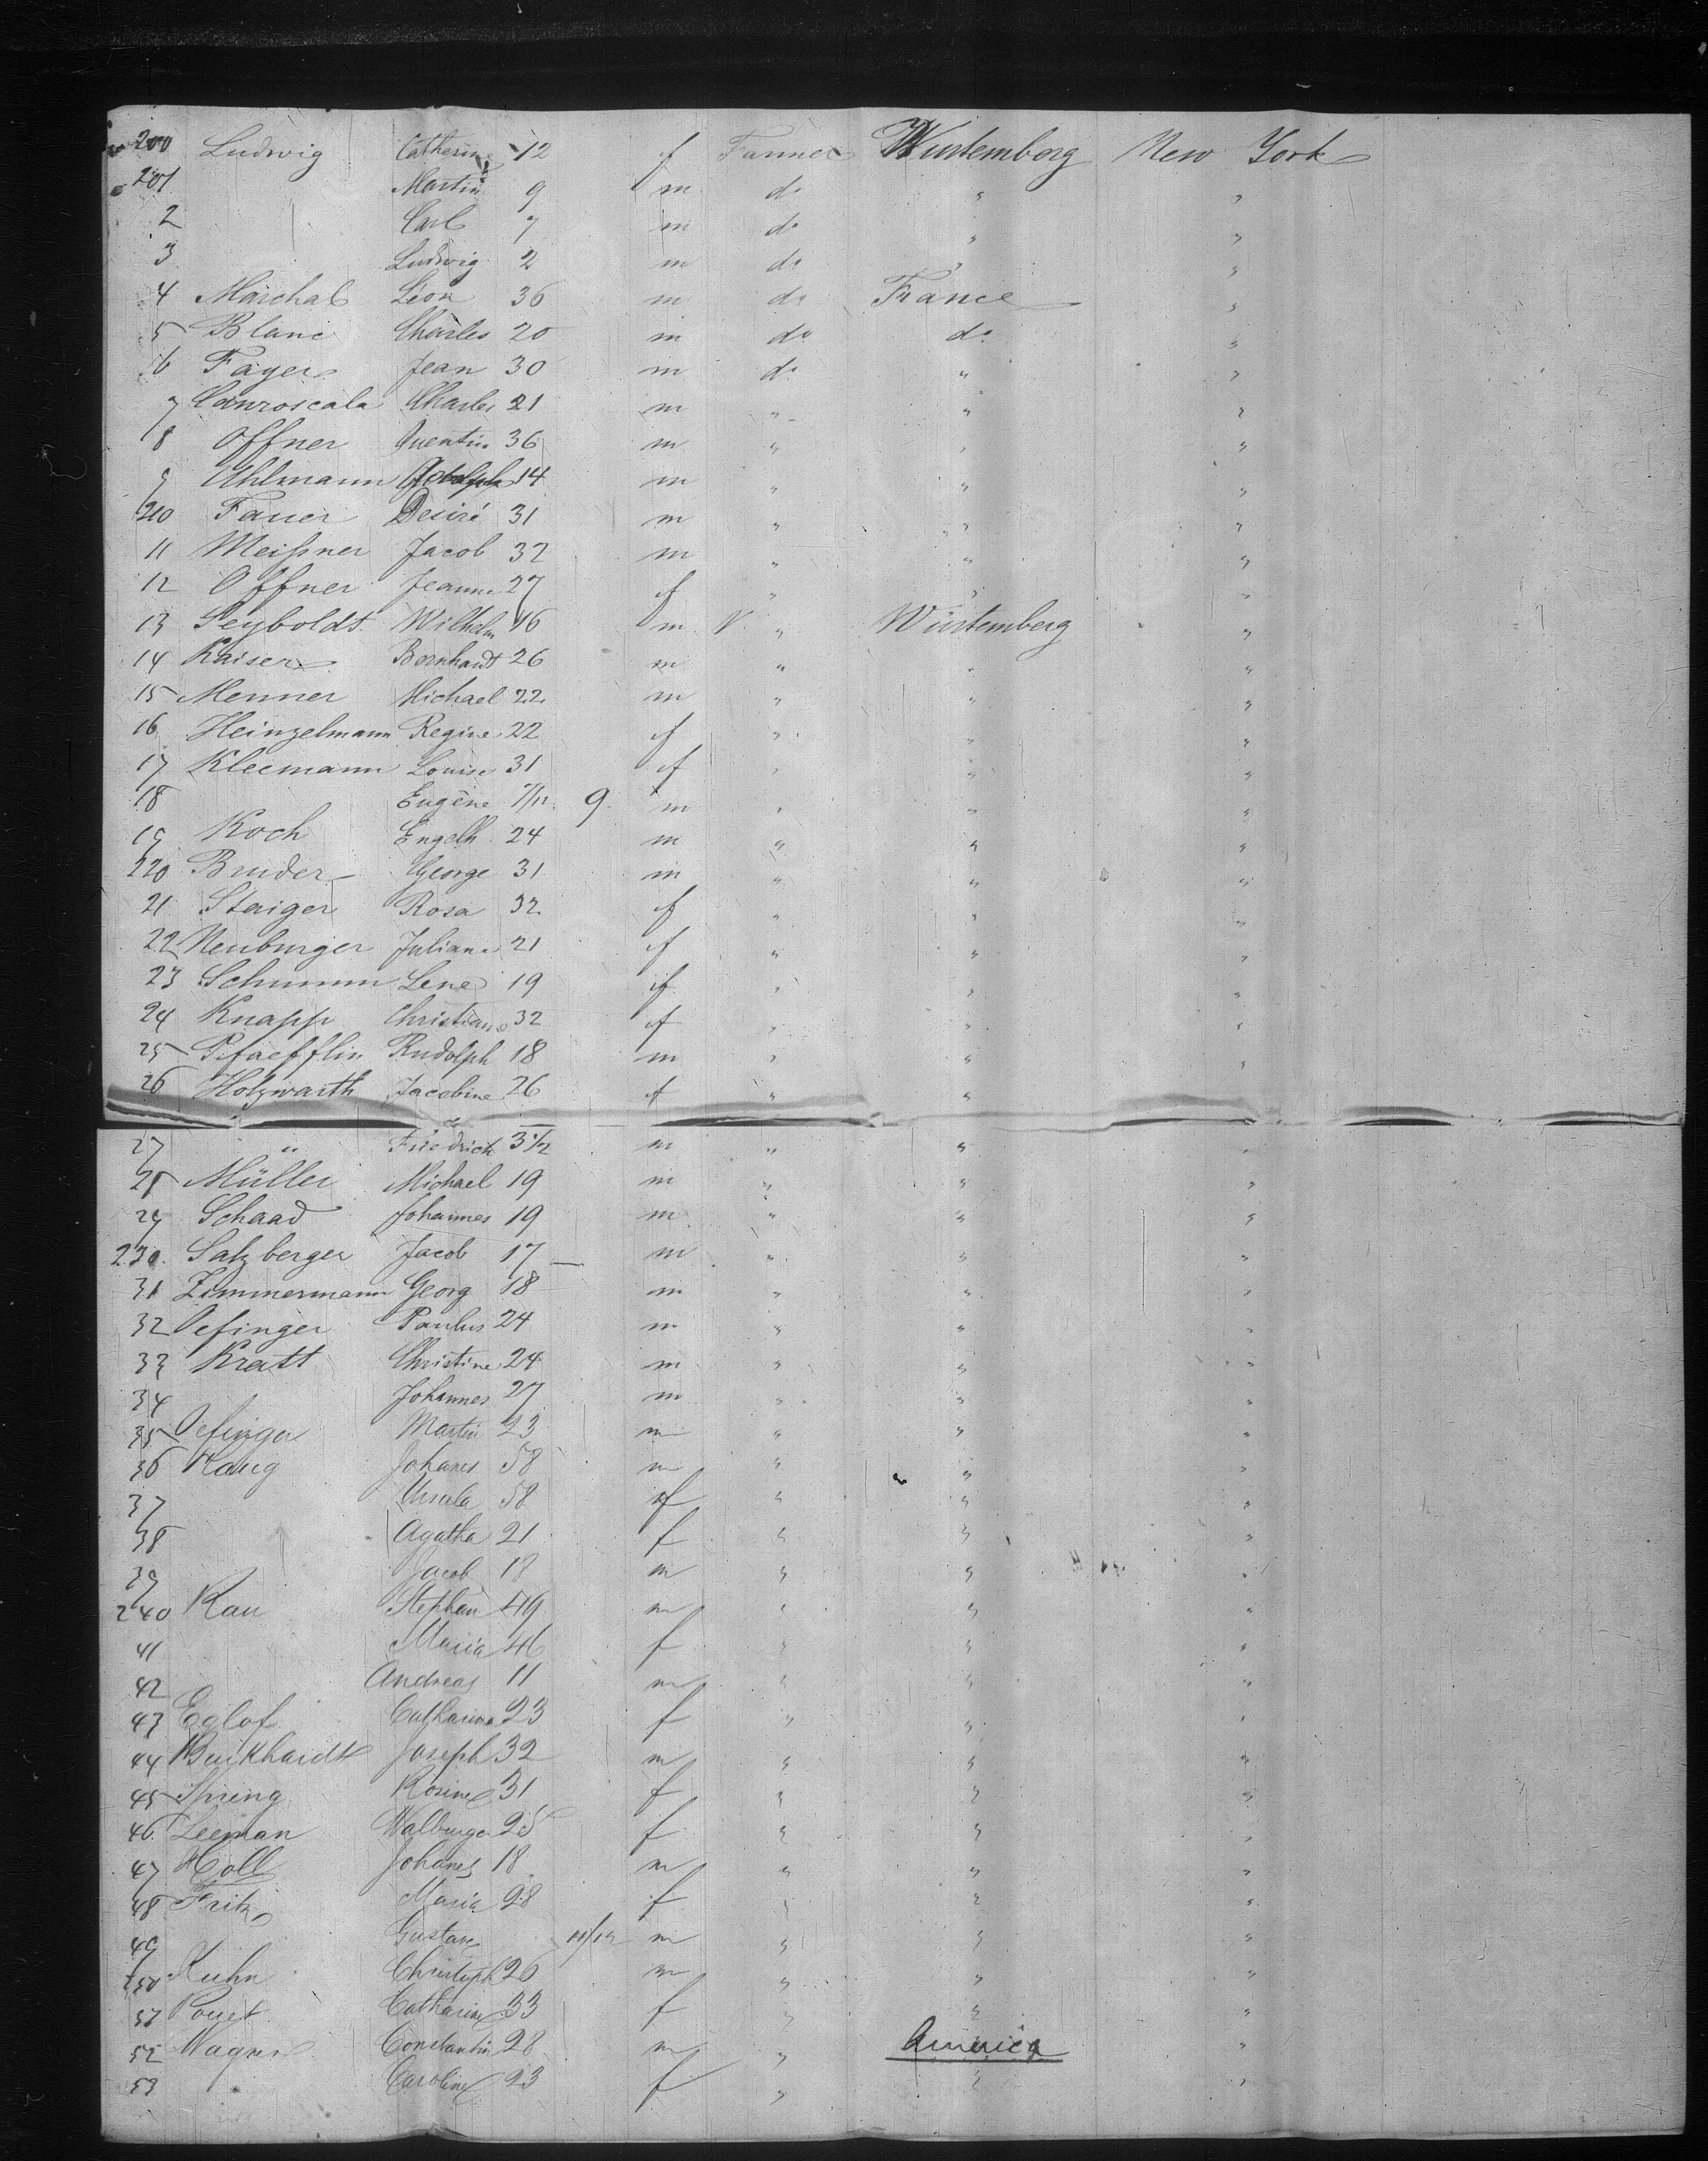 200 Ludwig Catherine 12 f Farmer Wurtemberg New York
201 Martin 9 m do " "
2 Carl 7 m do " "
3 Ludwig 2 m do " "
4 Marchal Léon 36 m do France "
5 Blanc Charles 20 m do do "
6 Fayer Jean 30 m do " "
7 Charles 21 m " " "
8 Offner Quentin 36 m " " "
9 Uhlmann Adolph 14 m " " "
210 Fauer Desiré 31 m " " "
11 Meißner Jacob 32 m " " "
12 Offner Jeanne 27 f " " "
13 Seyboldt Wilhelm 16 m " Würtemberg "
14 Kaiser Bernhardt 26 m " " "
15 Menner Michael 22 m " " "
16 Heinzelmann Regine 22 f " " "
17 Kleemann Louise 31 f " " "
18 Eugène 9 m " " "
19 Koch Engelh. 24 m " " "
220 Bruder George 31 m " " "
21 Staiger Rosa 32 f " " "
22 Neuburger Juliane 21 f " " "
23 Schumm Lene 19 f " " "
24 Knapp Christiane 32 f " " "
25 Pfaefflin Rudolph 18 m " " "
26 Holzwarth Jacobine 26 f " "
27 " Friedrich 3 1/2 m " " "
28 Müller Michael 19 m " " "
29 Schaad Johannes 19 m " " "
230. Salzberger Jacob 17 m " " "
31 Zimmermann Georg 18 m " " "
32 Oefinger Paulus 24 m " " "
33 Kratt Christine 24 m " " "
34 Johannes 27 m " " "
35 Oefinger Martin 23 m " " "
36 Haug Johanes 58 m " " "
37 Ursula 58 f " " "
38 Agatha 21 f " " "
39 Jacob 18 m " " "
240 Rau Stephan 49 m " " "
41 Maria 46 f " " "
42 Andreas 11 m " " "
43 Eglof Catharina 23 f " " "
44 Burkhardt Joseph 32 m " " "
45 Spring Rosine 31 f " " "
46 Leeman Walburga 25 f " " "
47 Holl Johanes 18 m " " "
48 Fritz Maria 28 f " " "
49 Gustave 11/12 m " " "
250 Kuhn Christoph 26 m " " "
51 Catharine 33 f " " "
52 Wagner Constantin 28 m " America "
53 " Caroline 23 f " " "